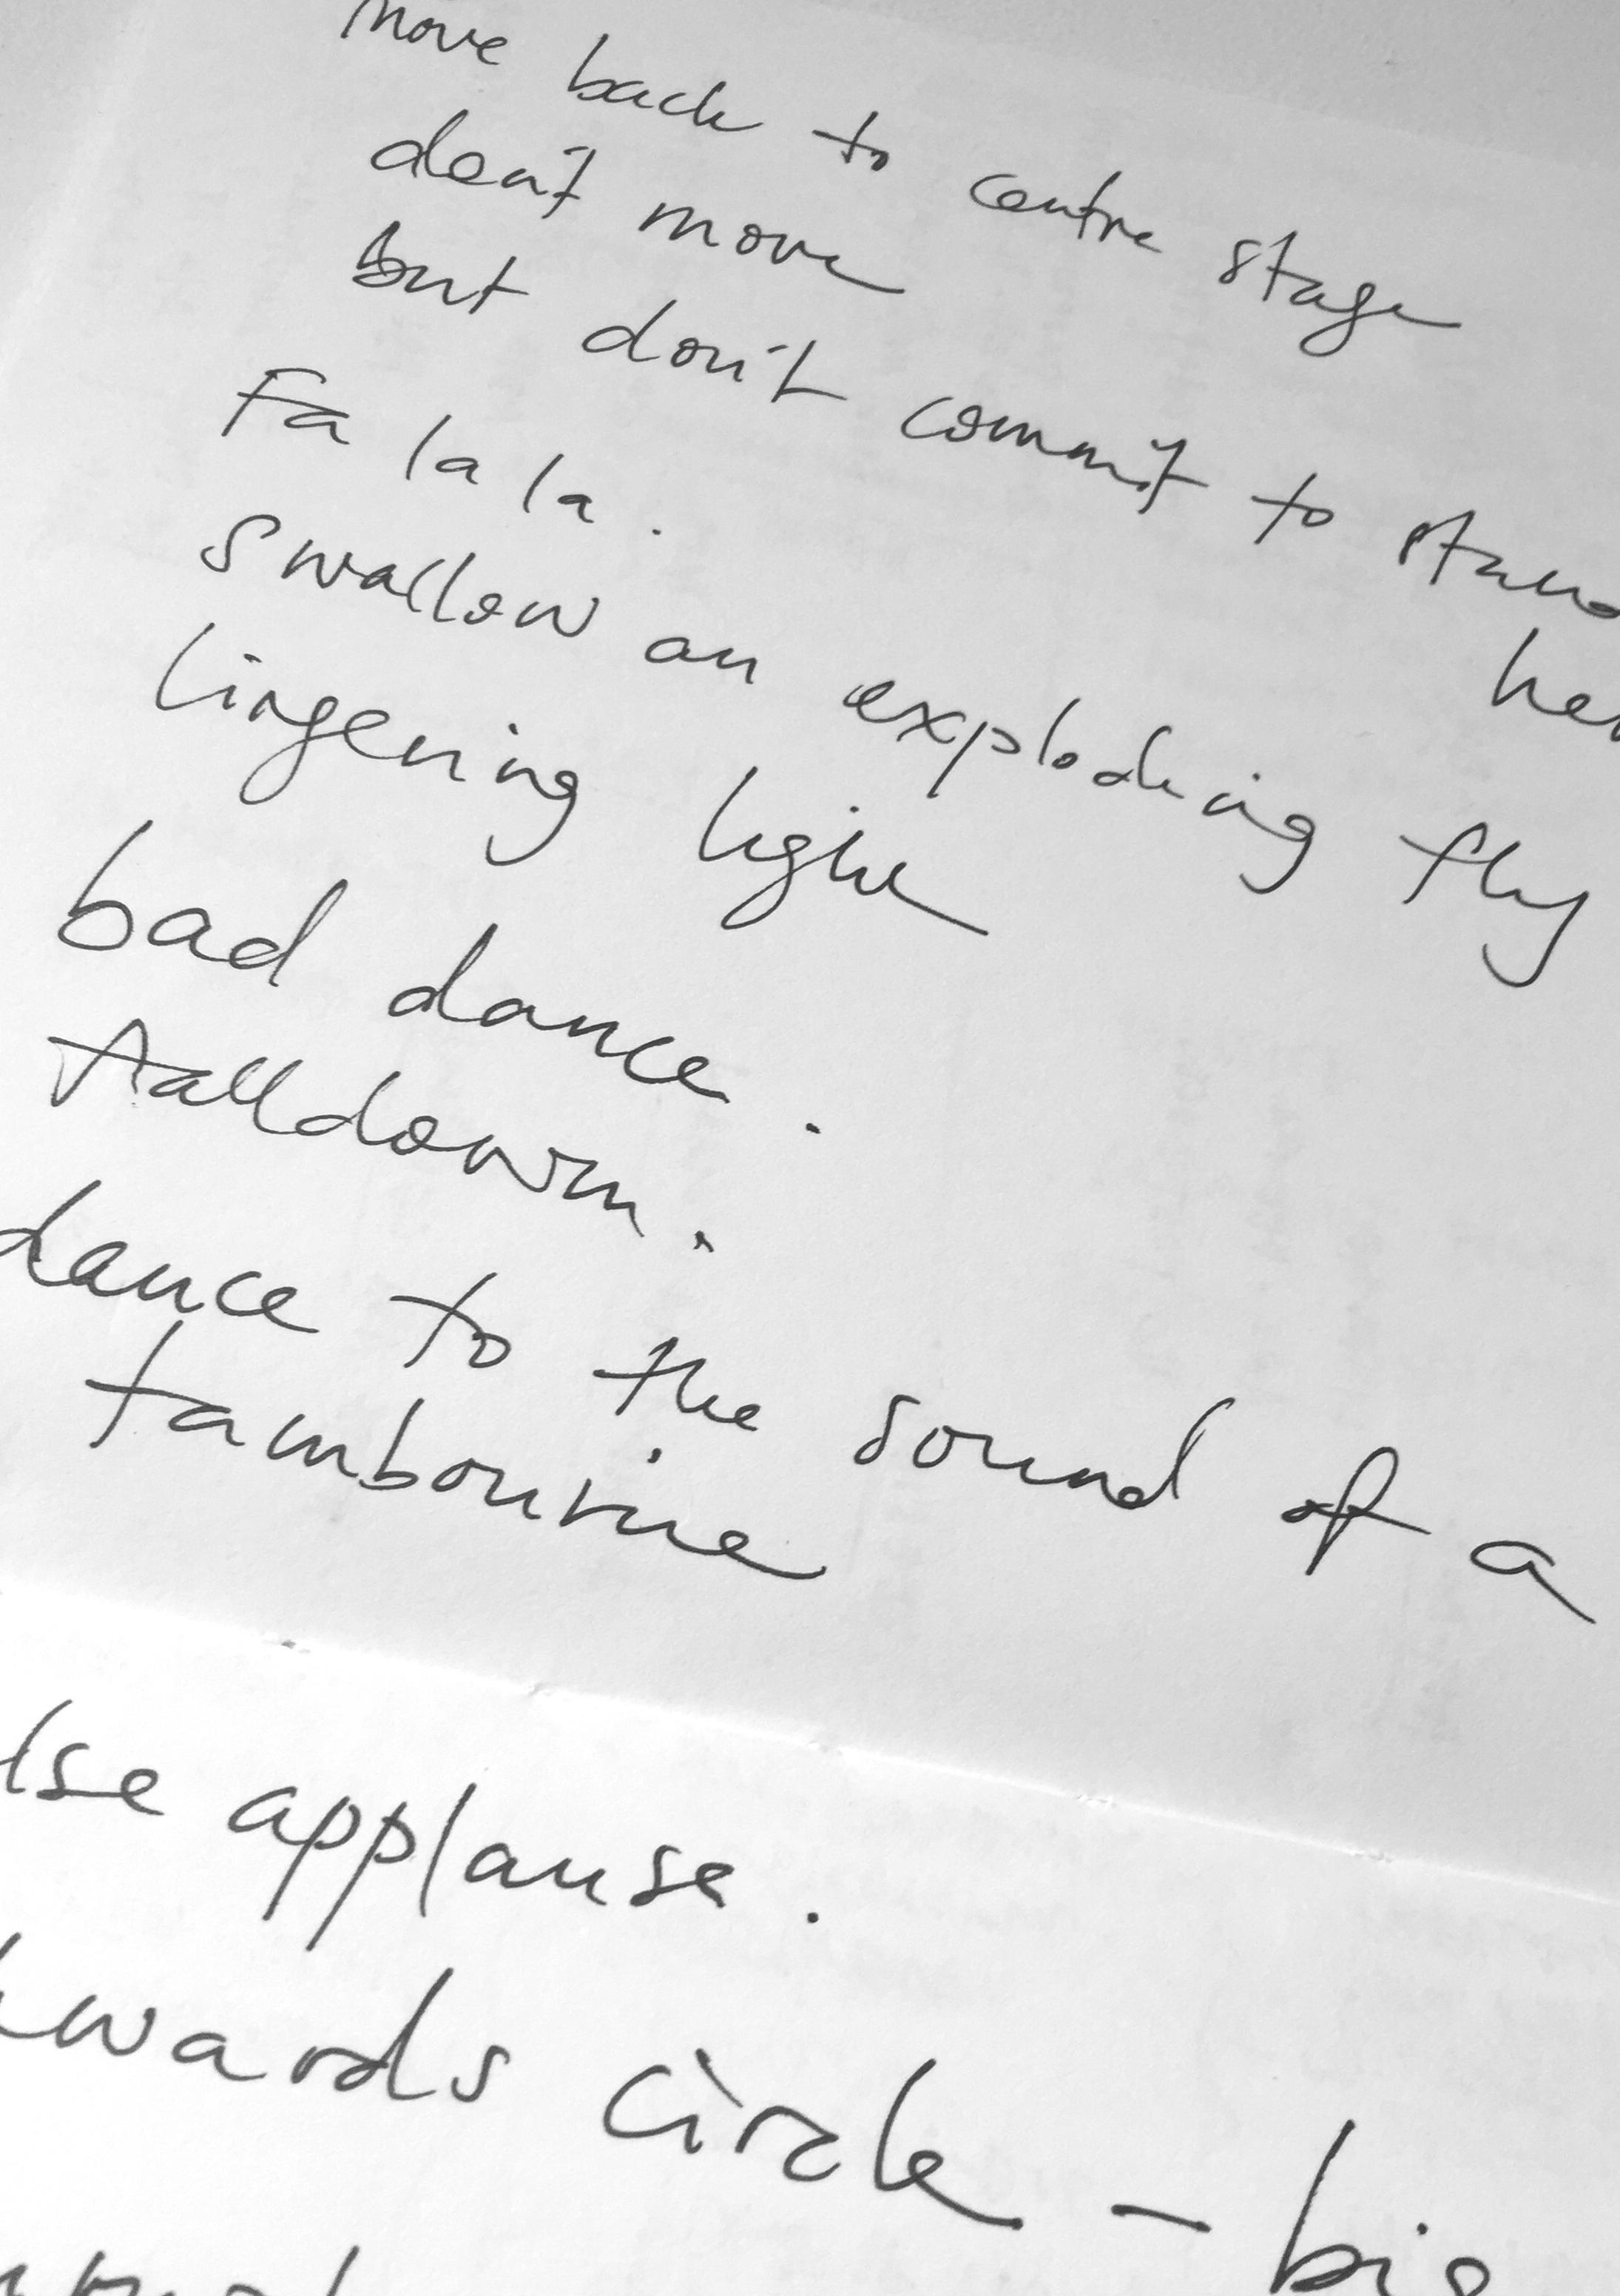 move back to centre stage
don't move
but don't commit to stand
her
Fa la la.
swallow an exploding fly
lingering light
bad dance.
falldown.
dance to the sound of a
tambourine
lse applause.
kwards circle – big